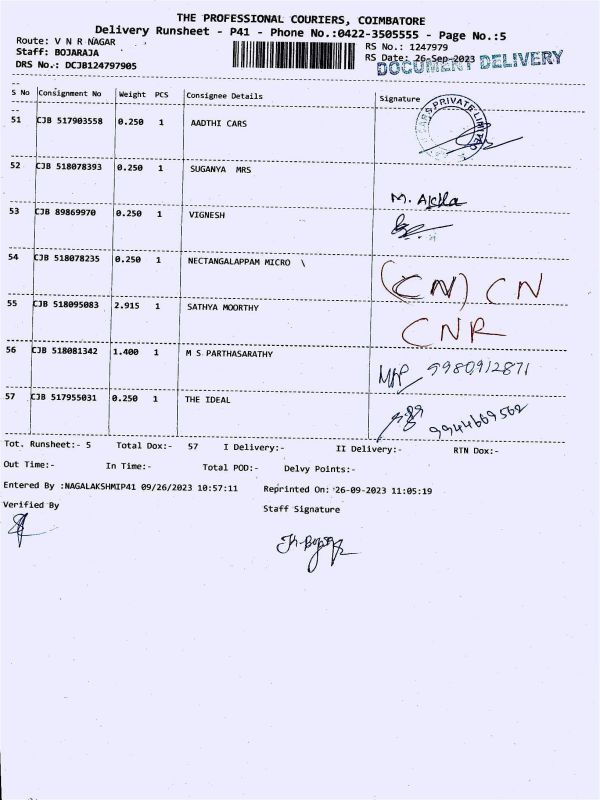 THE PROFESSIONAL COURIERS, COIMBATORE
Delivery Runsheet - P41 - Phone No.:0422-3505555 - Page No.:5
Route: V N R NAGAR
RS No.: 1247979
Staff: BOJARAJA
RS Date: 26-Sep-2023
DRS No.: DCJB124797905
DOCUMENT DELIVERY
S No Consignment No Weight PCS Consignee Details Signature
51 CJB 517903558 0.250 1 AADTHI CARS
CARS PRIVATE LIMITED
52 CJB 518078393 0.250 1 SUGANYA MRS
53 CJB 89869970 0.250 1 VIGNESH
54 CJB 518078235 0.250 1 NECTANGALAPPAM MICRO \
(CN) CN
55 CJB 518095083 2.915 1 SATHYA MOORTHY
CNR
56 CJB 518081342 1.400 1 M S PARTHASARATHY
9980912871
57 CJB 517955031 0.250 1 THE IDEAL
9944669562
Tot. Runsheet:- 5 Total Dox:- 57 I Delivery:- II Delivery:- RTN Dox:-
Out Time:- In Time:- Total POD:- Delvy Points:-
Entered By :NAGALAKSHMIP41 09/26/2023 10:57:11 Reprinted On: 26-09-2023 11:05:19
Verified By
Staff Signature